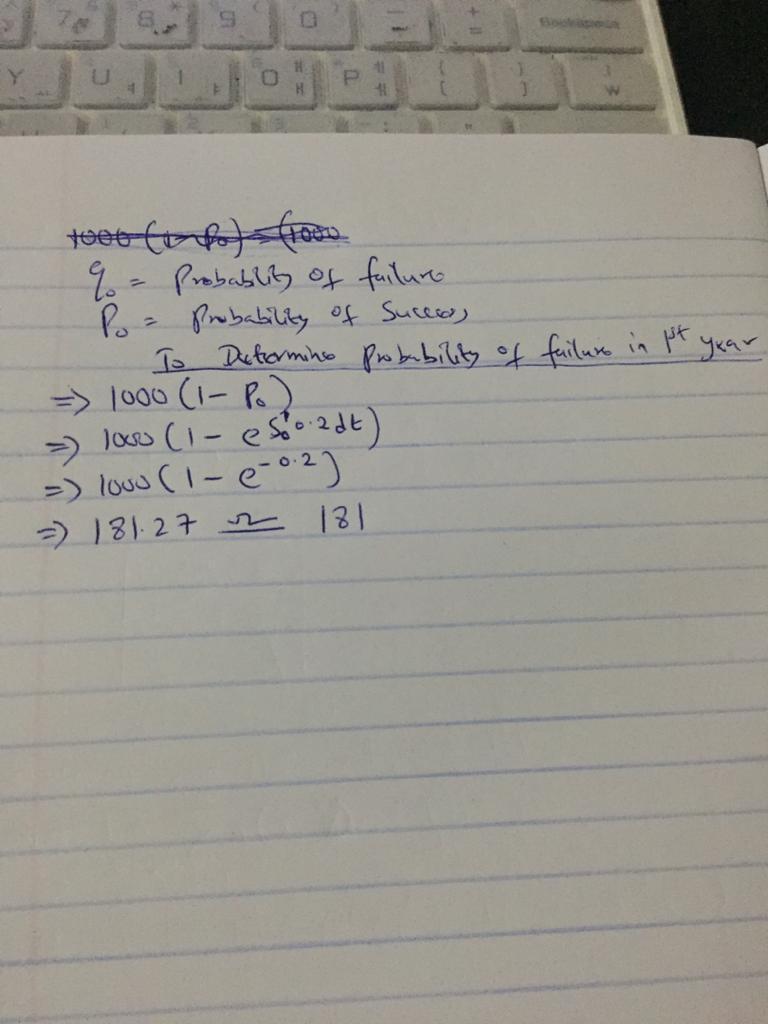 7 8 9 0 - + = Backspace
Y U I O P { [ } ] W
1000 (1 - P₀) = (1000
q₀ = Probability of failure
P₀ = Probability of Success
To Determine Probability of failure in 1st year
=> 1000 (1 - P₀)
=> 1000 (1 - e^{∫₀¹ 0.2dt})
=> 1000 (1 - e^{-0.2})
=> 181.27 ≃ 181